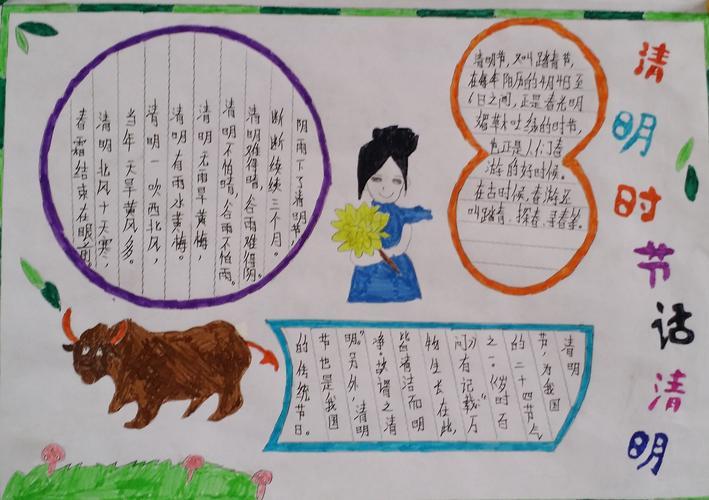 清明时节话清明
阴雨下了清明节,
断断续续三个月。
清明难得晴,谷雨难得阴。
清明不怕晴,谷雨不怕雨。
清明无雨旱黄梅,
清明有雨水黄梅。
清明一吹西北风,
当年天旱黄风多。
清明北风十天寒,
春霜结束在眼前
清明节,又叫踏青节,
在每年阳历的4月4日至
6日之间,正是春光明
媚草木吐绿的时节,
也正是人们春
游的好时候。
在古时候,春游还
叫踏青、探春、寻春等。
清明
节,为我国
的二十四节气
之一。《岁时百
问》有记载"万
物生长在此,
皆清洁而明
净。故谓之清
明。"另外,清明
节也是我国
的传统节日。